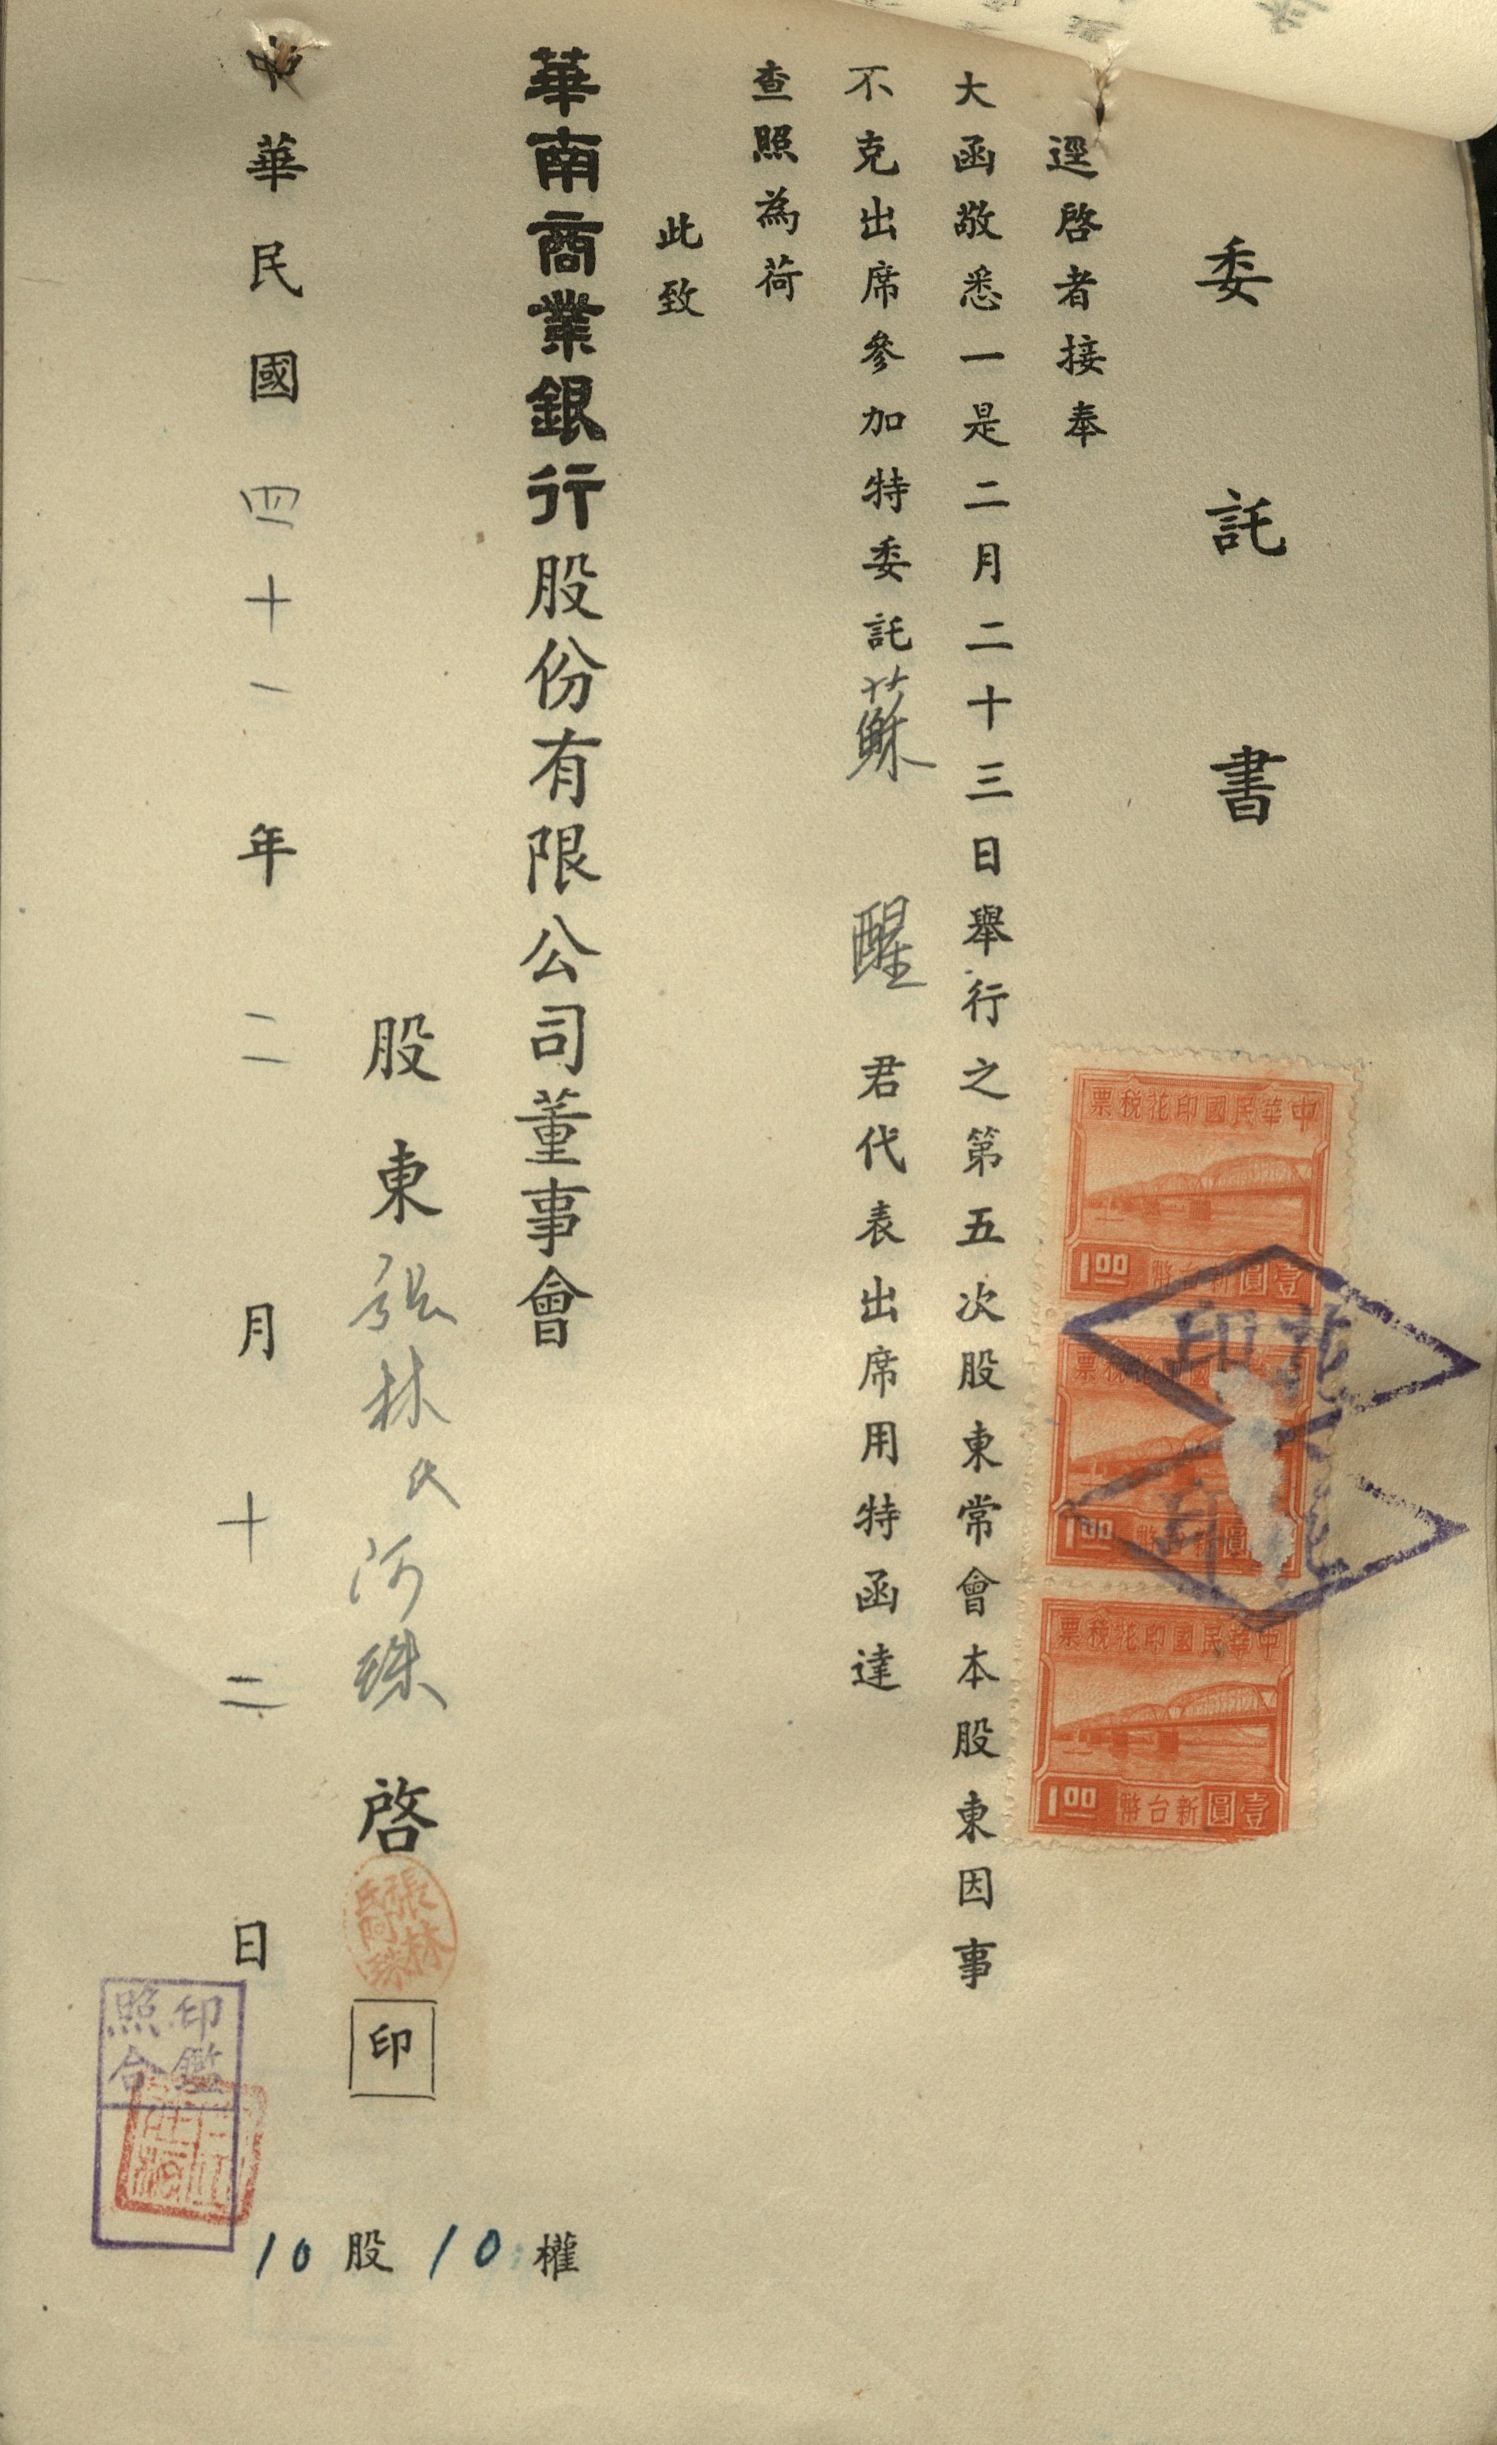 委託書
逕啓者接奉
大函敬悉一是二月二十三日舉行之第五次股東常會本股東因事
不克出席參加特委託蘇醒君代表出席用特函達
查照為荷
此致
華南商業銀行股份有限公司董事會
股東張林氏阿珠啓
張林氏阿珠
印
中華民國四十一年二月十二日
印鑑照合
10股10權
中華民國印花稅票
1.00 壹圓新台幣
印花
票稅花印國
1.00 圓新台幣
印花
中華民國印花稅票
1.00 壹圓新台幣